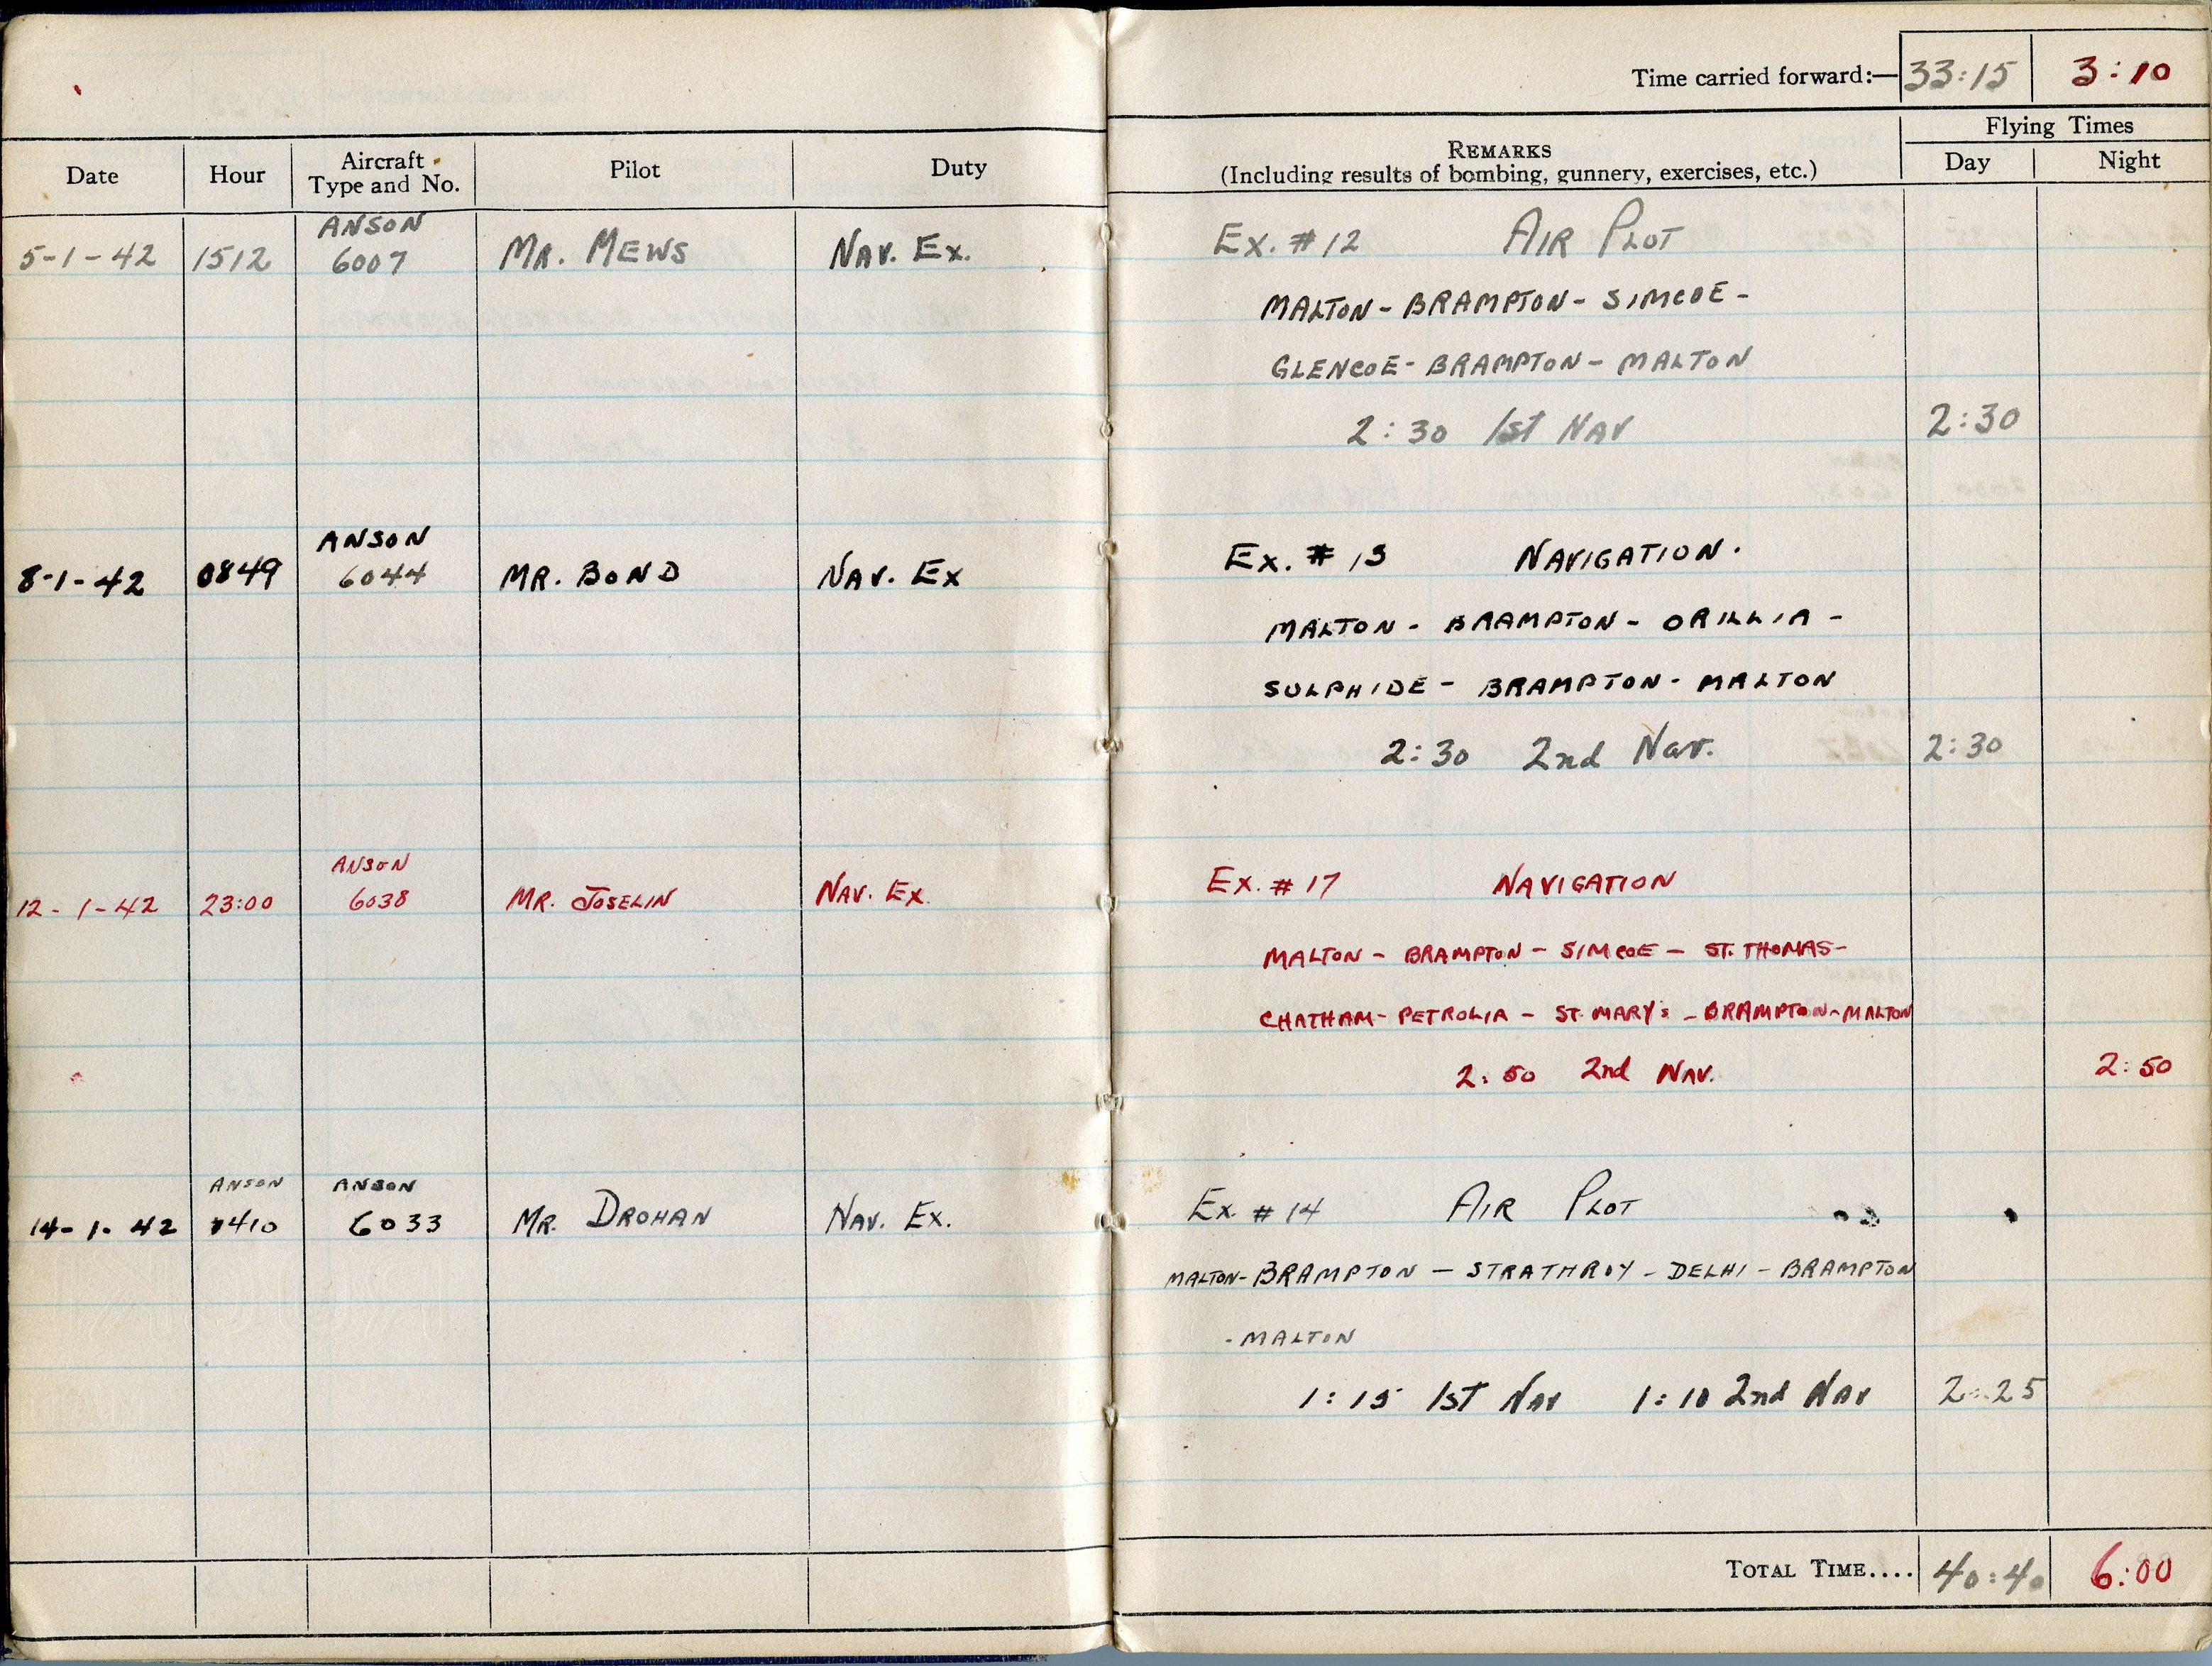 Time carried forward:— 33:15 3:10
Date Hour Aircraft Type and No. Pilot Duty REMARKS (Including results of bombing, gunnery, exercises, etc.) Flying Times Day Night
ANSON
5-1-42 1512 6007 MR. MEWS NAV. EX. EX. #12 AIR PLOT
MALTON - BRAMPTON - SIMCOE -
GLENCOE - BRAMPTON - MALTON
2:30 1st NAV 2:30
ANSON
8-1-42 0849 6044 MR. BOND NAV. EX EX. #13 NAVIGATION.
MALTON - BRAMPTON - ORILLIA -
SULPHIDE - BRAMPTON - MALTON
2:30 2nd Nav. 2:30
ANSON
12-1-42 23:00 6038 MR. JOSELIN NAV. EX. EX. #17 NAVIGATION
MALTON - BRAMPTON - SIMCOE - ST. THOMAS -
CHATHAM - PETROLIA - ST. MARY'S - BRAMPTON - MALTON
2:50 2nd NAV. 2:50
ANSON ANSON
14-1-42 1410 6033 MR. DROHAN NAV. EX. EX #14 AIR PLOT
MALTON - BRAMPTON - STRATHROY - DELHI - BRAMPTON
- MALTON
1:15 1st NAV 1:10 2nd NAV 2:25
TOTAL TIME.... 40:40 6:00